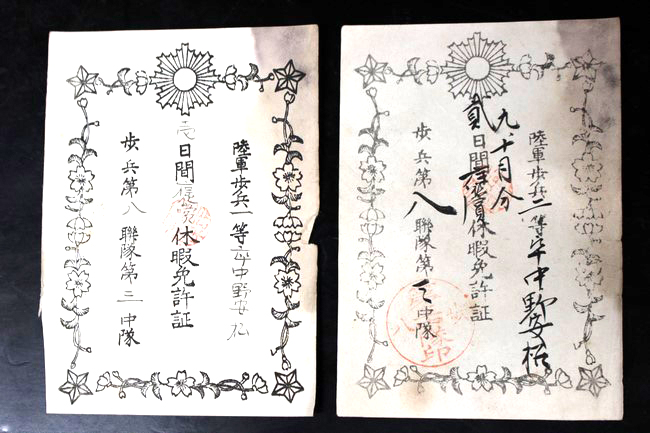 陸軍歩兵一等卒中野安松
壱日間褒賞休暇免許証
歩兵第八聯隊第三中隊
九、十月分
陸軍歩兵二等卒中野安松
貳日間褒賞休暇免許証
歩兵第八聯隊第三中隊